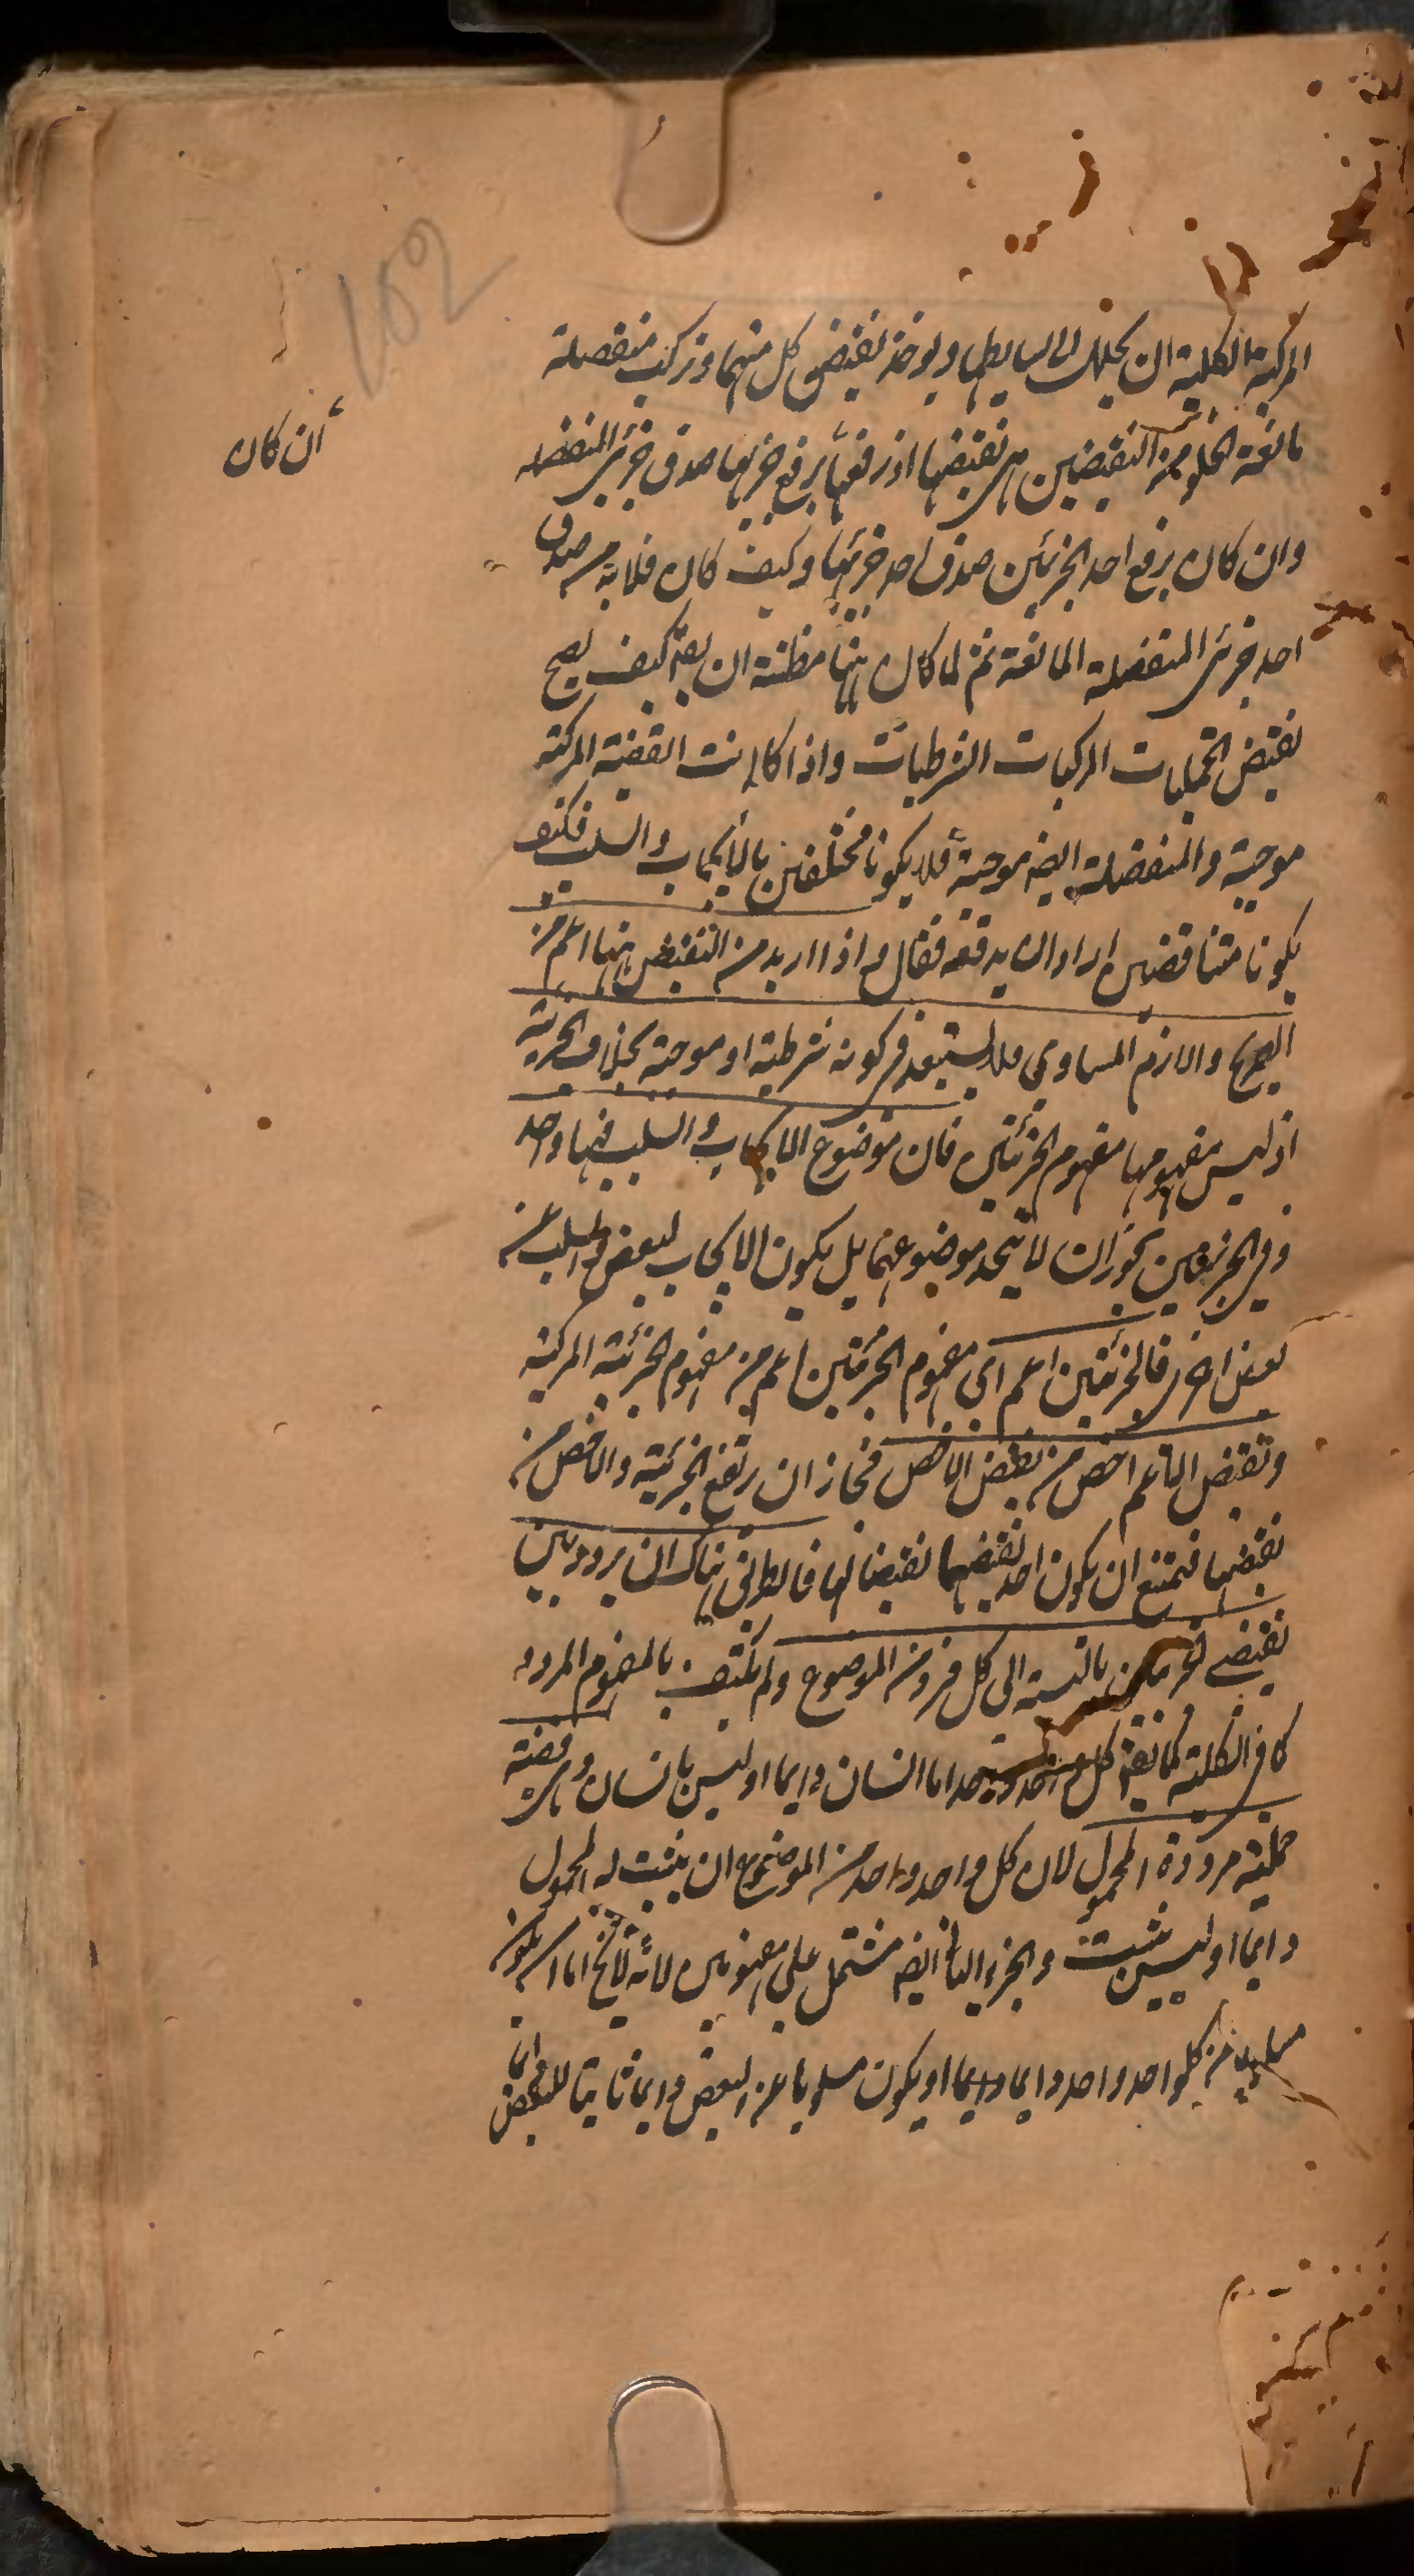 المركبة الكلية ان يحلل الى بسايطها ويوخذ نقيض كل منهما وتركب منفصلة
مانعة الخلو من النقيضين هى نقيضها اذ رفعها برفع جزئيها صدق جزئى المنفصله
ان كان
وان كان برفع احد الجزئين صدق احد جزئيها وكيف كان فلابد من صدق
احد جزئى المنفصلة المانعة ثم لما كان ههنا مظنة ان يقال كيف يصح
نقيض الحمليات المركبات الشرطيات واذا كانت القضية المركبة
موجبة والمنفصلة ايضا موجبة فلا يكونا مختلفين بالايجاب والسلب فكيف
يكونا متناقضين اراد ان يدفعه فقال واذا اريد من النقيض ههنا اعم من
الصريح والازم المساوى فلا يستبعد فى كونه شرطية او موجبة بخلاف الجزئية
اذ ليس مفهومها مفهوم الجزئيتين فان موضوع الايجاب والسلب فيها واحد
وفى الجزئيتين يجوز ان لا يتحد موضوعهما بل يكون الايجاب لبعض والسلب عن
بعض اخر فالجزئيتين اعم اى مفهوم الجزئيتين اعم من مفهوم الجزئية المركبة
ونقيض الاعم اخص من نقيض الاخص فجاز ان يرتفع الجزئية والاخص من
نقيضها فيمتنع ان يكون احد نقيضيهما نقيضا لها فالطريق هناك ان يردد بين
نقيضى الجزئين بالنسبة الى كل فرد من الموضوع ولم يكتف بالمفهوم المردد
كما فى الكلية كما يقال كل واحد واحد اما انسان دايما او ليس بانسان وهى قضية
حملية مرددة المحمول لان كل واحد واحد من الموضوع ان يثبت له المحمول
دايما او ليس يثبت والجزء الثانى ايضا مشتمل على مفهومين لانه لا يخ اما ان يكون
مسلوبا عن كلواحد واحد دايما او يكون مسلوبا عن البعض دايما ثابتا للبعض دايما